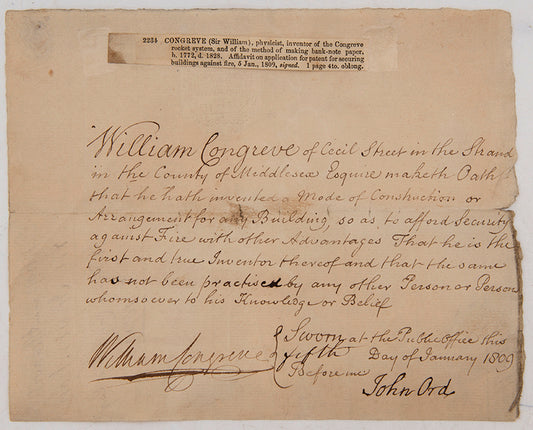 2234 CONGREVE (Sir William), physicist, inventor of the Congreve
rocket system, and of the method of making bank-note paper.
b. 1772, d. 1828. Affidavit on application for patent for securing
buildings against fire, 5 Jan., 1809, signed. 1 page 4to. oblong.
William Congreve of Cecil Street in the Strand
in the County of Middlesex Esquire maketh Oath
that he hath invented a Mode of Construction or
Arrangement for any Building, so as to afford Security
against Fire with other Advantages That he is the
first and true Inventor thereof and that the same
has not been practised by any other Person or Person
whomsoever to his Knowledge or Belief
William Congreve
Sworn at the Public Office this
fifth Day of January 1809
Before me
John Ord